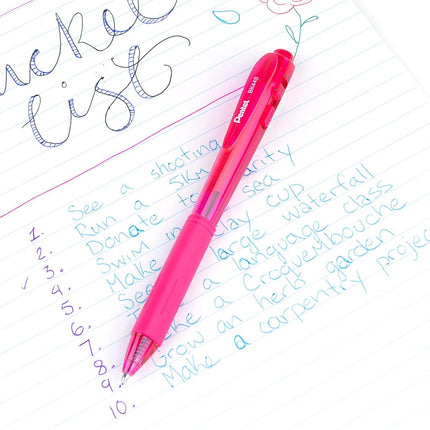 ucket
list
Pentel BX440
1. See a shooting
2. Run a 5km
3. Donate to arity
4. Swim in sea
5. Make lay cup
6. See large waterfall
7. a language class
8. ke a Croquembouche
9. Grow an herb garden
10. Make a carpentry projec